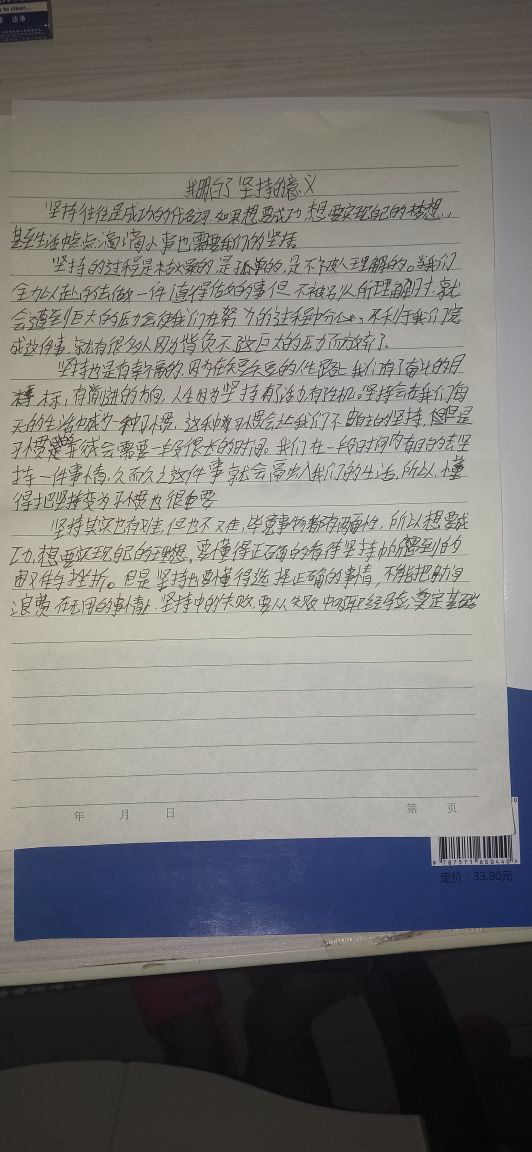 to clean...
洁净
我明白了坚持的意义
坚持往往是成功的代名词,如果想要成功,想要实现自己的梦想,
甚至生活中点点滴滴小事也需要我们的坚持
坚持的过程是枯燥的是孤单的,是不被人理解的。当我们
全力以赴的去做一件值得做的事但不被别人所理解时,就
会遭到巨大的压力会使我们在努力的过程中分心,不利于我们完
成这件事,就有很多人因为背负不了巨大的压力而放弃了。
坚持也是有幸福的,因为在坚持的人生路上我们有了奋斗的目
标,有前进的方向,人生因为坚持有了活力有了生机。坚持会在我们每
天的生活中成为一种习惯,这种习惯会让我们不自主的坚持,但是
习惯是会需要一段很长的时间,我们在一段时间内有目的去坚
持一件事情,久而久之这件事就会融入我们的生活,所以,懂
得把坚持变为习惯也很重要
坚持其实也有难,但也不难,毕竟事物都有两面性,所以想要成
功,想要实现自己的理想,要懂得正确的看待坚持中所遇到的
困难与挫折。但是坚持也要懂得选择正确的事情,不能把时间
浪费在无用的事情上.坚持中的失败,要从失败中吸取经验,奠定基础
年 月 日 第 页
9 787571 600440
定价:33.80元